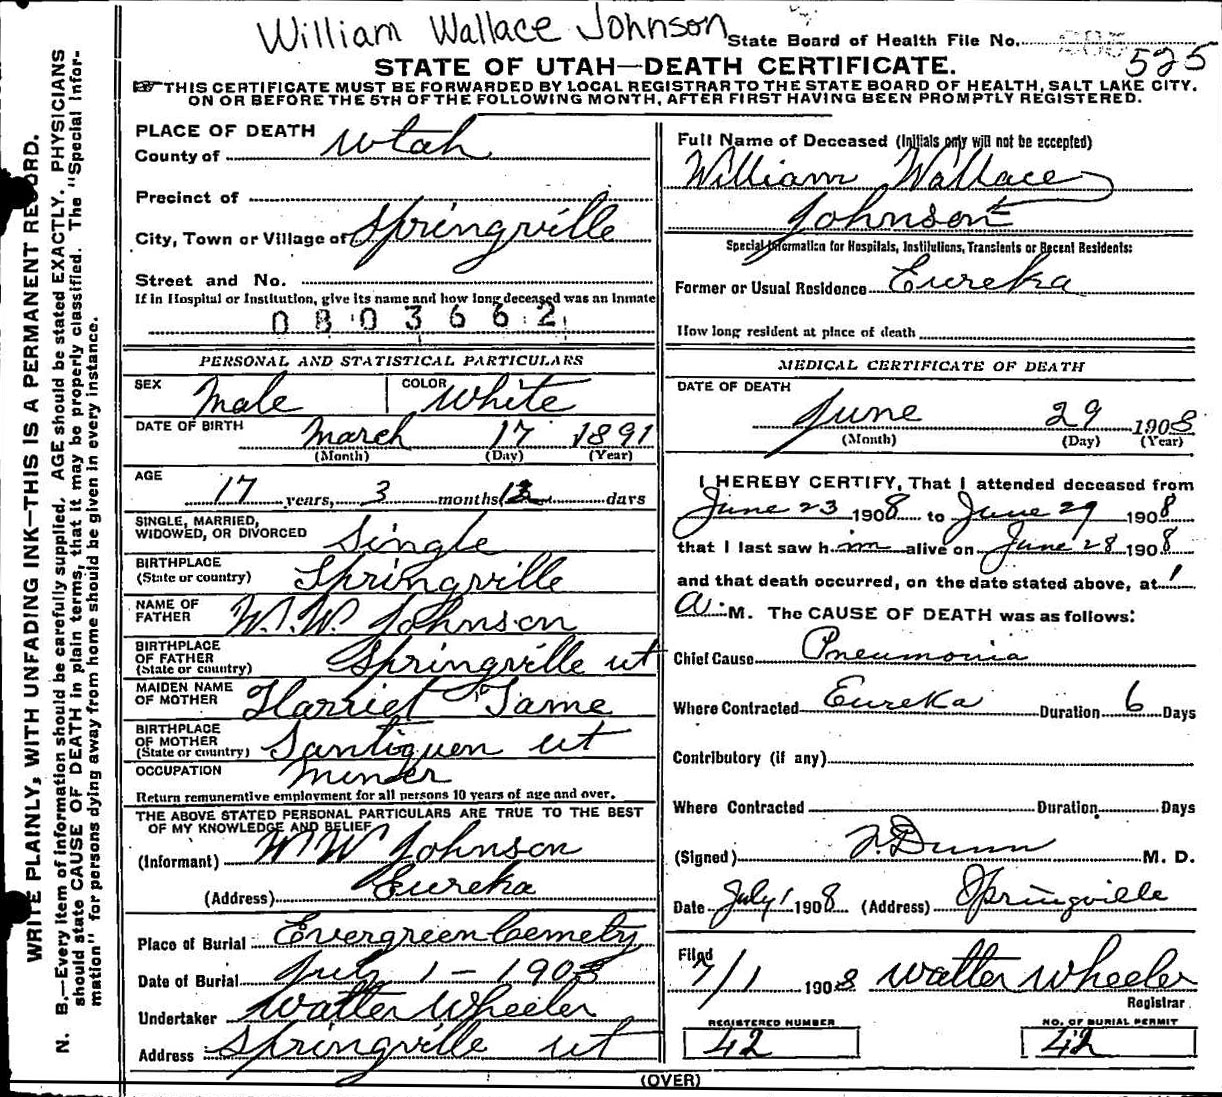 William Wallace Johnson
State Board of Health File No. 525
STATE OF UTAH—DEATH CERTIFICATE.
THIS CERTIFICATE MUST BE FORWARDED BY LOCAL REGISTRAR TO THE STATE BOARD OF HEALTH, SALT LAKE CITY.
ON OR BEFORE THE 5TH OF THE FOLLOWING MONTH, AFTER FIRST HAVING BEEN PROMPTLY REGISTERED.
WRITE PLAINLY, WITH UNFADING INK—THIS IS A PERMANENT RECORD.
N. B.—Every item of information should be carefully supplied. AGE should be stated EXACTLY. PHYSICIANS
should state CAUSE OF DEATH in plain terms, that it may be properly classified. The "Special Infor-
mation" for persons dying away from home should be given in every instance.
PLACE OF DEATH
County of Utah
Precinct of
City, Town or Village of Springville
Street and No.
If in Hospital or Institution, give its name and how long deceased was an inmate
0803662
PERSONAL AND STATISTICAL PARTICULARS
SEX Male COLOR White
DATE OF BIRTH March 17 1891
(Month) (Day) (Year)
AGE
17 years, 3 months, 12 days
SINGLE, MARRIED,
WIDOWED, OR DIVORCED Single
BIRTHPLACE
(State or country) Springville
NAME OF
FATHER W.W. Johnson
BIRTHPLACE
OF FATHER
(State or country) Springville ut
MAIDEN NAME
OF MOTHER Harriet Tame
BIRTHPLACE
OF MOTHER
(State or country) Santiquen ut
OCCUPATION Minder
Return remunerative employment for all persons 10 years of age and over.
THE ABOVE STATED PERSONAL PARTICULARS ARE TRUE TO THE BEST
OF MY KNOWLEDGE AND BELIEF
(Informant) W W Johnson
(Address) Eureka
Place of Burial Evergreen Cemety
Date of Burial July 1 - 1908
Undertaker Walter Wheeler
Address Springville ut
Full Name of Deceased (Initials only will not be accepted)
William Wallace
Johnson
Special Information for Hospitals, Institutions, Transients or Recent Residents:
Former or Usual Residence Eureka
How long resident at place of death
MEDICAL CERTIFICATE OF DEATH
DATE OF DEATH
June 29 1908
(Month) (Day) (Year)
I HEREBY CERTIFY, That I attended deceased from
June 23 1908 to June 29 1908
that I last saw him alive on June 28 1908
and that death occurred, on the date stated above, at 1
A. M. The CAUSE OF DEATH was as follows:
Chief Cause Pneumonia
Where Contracted Eureka Duration 6 Days
Contributory (if any)
Where Contracted Duration Days
(Signed) F. Dunn M. D.
Date July 1 1908 (Address) Springville
Filed
7/1 1908 Walter Wheeler
Registrar
REGISTERED NUMBER
42
NO. OF BURIAL PERMIT
42
(OVER)